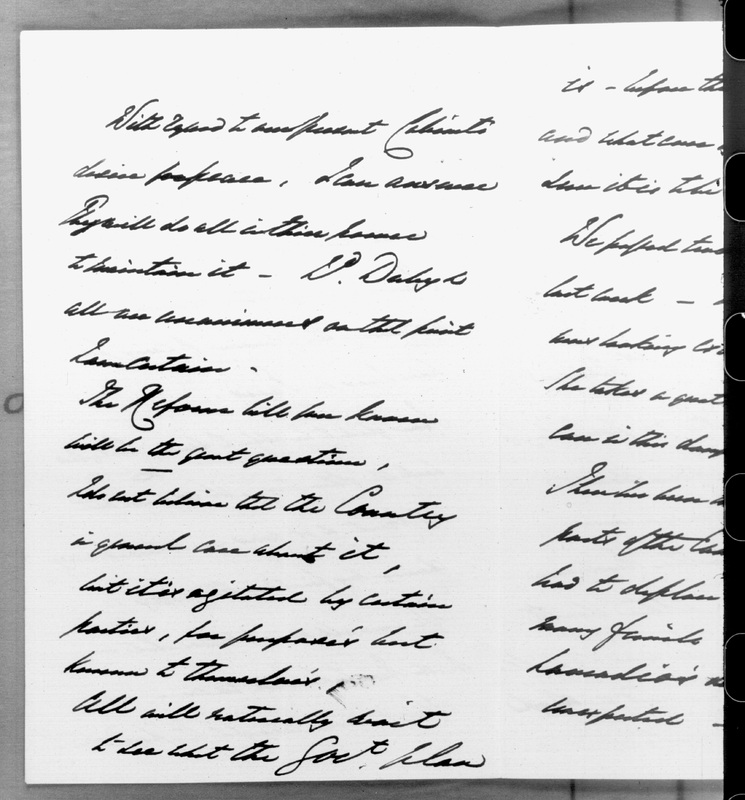 With regard to our present Cabinet's
desire for peace, I can answer
They will do all in their power
to maintain it - Ld. Derby &
all are unanimous on that point
I am certain -
The Reform bill you know
will be the great question,
I do not believe that the Country
in general care about it,
but it is agitated by certain
parties, for purposes best
known to themselves,
All will naturally wait
to see what the Govt. Plan
is - before the
and what
We
last week -
was looking
She takes a great
care in this
There has been
parts of the
had to deplore
many friends
unexpected -